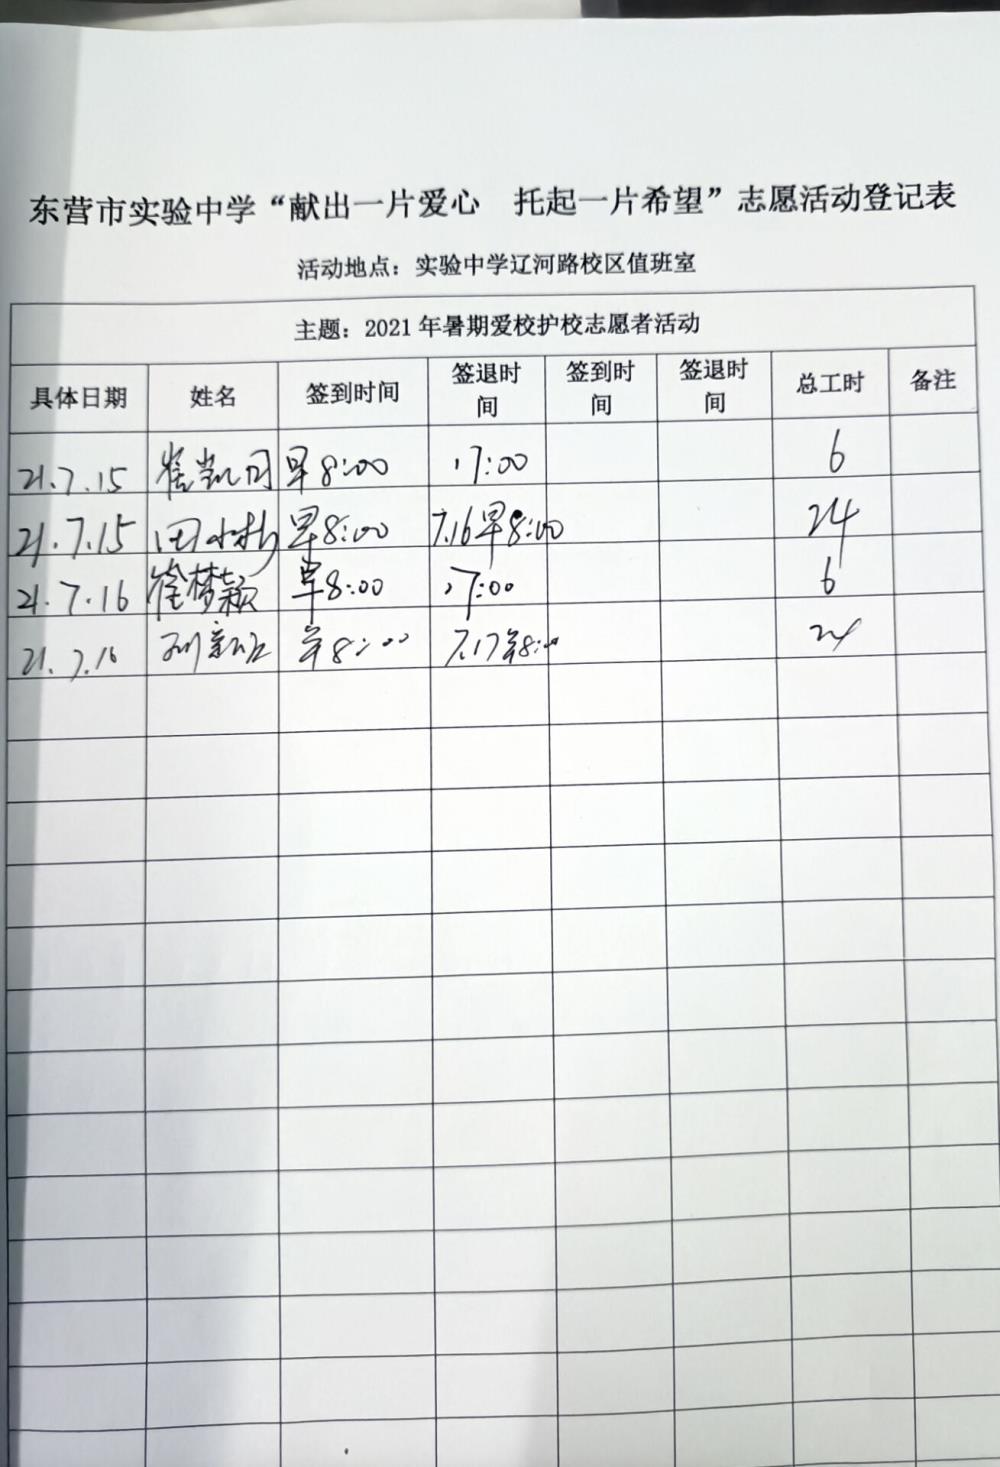 东营市实验中学“献出一片爱心 托起一片希望”志愿活动登记表
活动地点：实验中学辽河路校区值班室
主题：2021 年暑期爱校护校志愿者活动
具体日期 姓名 签到时间 签退时间 签到时间 签退时间 总工时 备注
21.7.15 崔凯月 早8:00 17:00 6
21.7.15 田 早8:00 7.16早8:00 24
21.7.16 崔梦颖 早8:00 17:00 6
21.7.16 早8:00 7.17早8:00 24